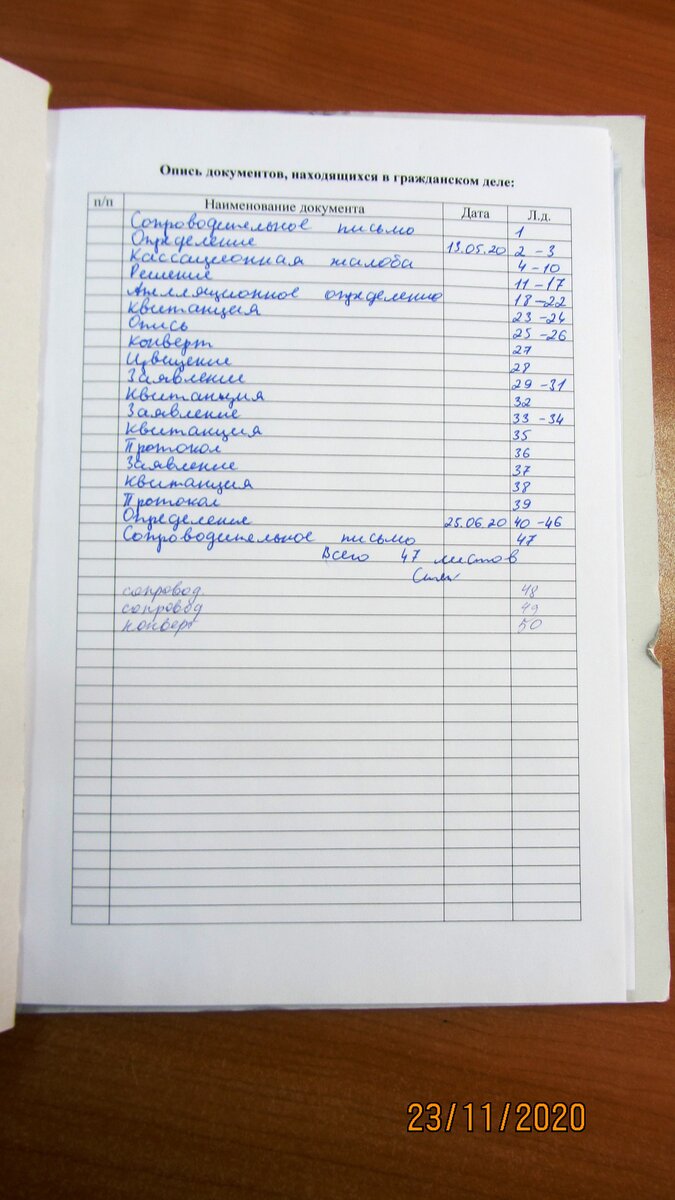 Опись документов, находящихся в гражданском деле:
п/п Наименование документа Дата Л.д.
Сопроводительное письмо 1
Определение 13.05.20 2-3
Кассационная жалоба 4-10
Решение 11-17
Апелляционное определение 18-22
Квитанция 23-24
Опись 25-26
Конверт 27
Извещение 28
Заявление 29-31
Квитанция 32
Заявление 33-34
Квитанция 35
Протокол 36
Заявление 37
Квитанция 38
Протокол 39
Определение 25.06.20 40-46
Сопроводительное письмо 47
Всего 47 листов
сопровод. 48
сопровод 49
конверт 50
23/11/2020